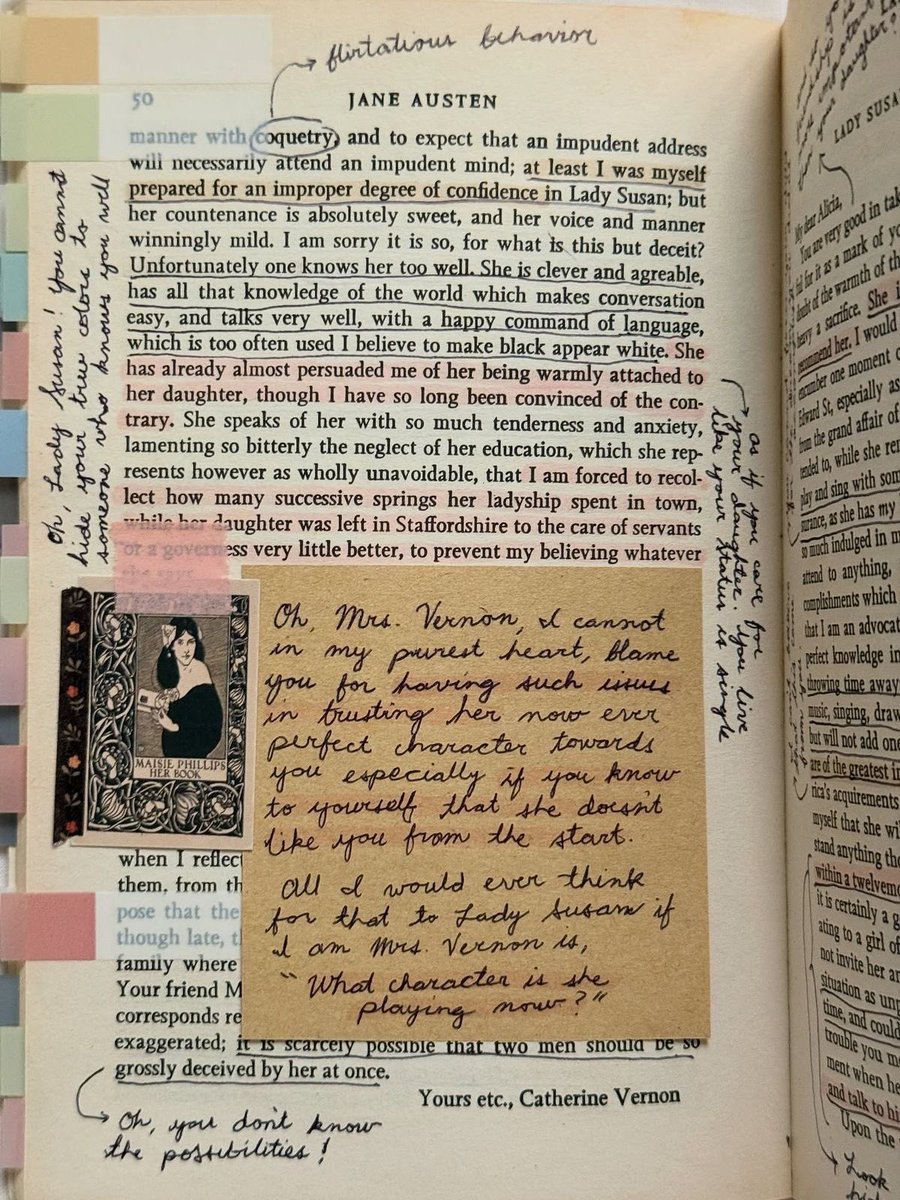 flirtatious behavior
50
JANE AUSTEN
manner with coquetry, and to expect that an impudent address
will necessarily attend an impudent mind; at least I was myself
prepared for an improper degree of confidence in Lady Susan; but
her countenance is absolutely sweet, and her voice and manner
winningly mild. I am sorry it is so, for what is this but deceit?
Unfortunately one knows her too well. She is clever and agreable,
has all that knowledge of the world which makes conversation
easy, and talks very well, with a happy command of language,
which is too often used I believe to make black appear white. She
has already almost persuaded me of her being warmly attached to
her daughter, though I have so long been convinced of the con-
trary. She speaks of her with so much tenderness and anxiety,
lamenting so bitterly the neglect of her education, which she rep-
resents however as wholly unavoidable, that I am forced to recol-
lect how many successive springs her ladyship spent in town,
while her daughter was left in Staffordshire to the care of servants
or a governess very little better, to prevent my believing whatever
she says.
Oh, Lady Susan! You cannot
hide your true colors to
someone who knows you well
as if you care for
your daughter. You live
like your status is single
MAISIE PHILLIPS
HER BOOK
Oh, Mrs. Vernon, I cannot
in my purest heart, blame
you for having such issues
in trusting her now ever
perfect character towards
you especially if you know
to yourself that she doesn't
like you from the start.
All I would ever think
for that to Lady Susan if
I am Mrs. Vernon is,
"What character is she
playing now?"
when I reflect
them, from th
pose that the
though late, t
family where
Your friend M
corresponds re
exaggerated; it is scarcely possible that two men should be so
grossly deceived by her at once.
Yours etc., Catherine Vernon
Oh, you don't know
the possibilities!
LADY SUSA
My dear Alicia,
You are very good in tak
ful for it as a mark of yo
doubt of the warmth of th
heavy a sacrifice. She i
recommend her. I would
encumber one moment o
Edward St, especially as
from the grand affair of
tended to, while she re
play and sing with som
surance, as she has my
so much indulged in m
attend to anything,
complishments which
that I am an advocat
perfect knowledge in
throwing time away
music, singing, draw
but will not add one
are of the greatest in
rica's acquirements
myself that she wil
stand anything tho
within a twelvemo
it is certainly a g
ating to a girl of
not invite her an
situation as unp
time, and could
trouble you m
ment when he
and talk to hi
Upon the
Look